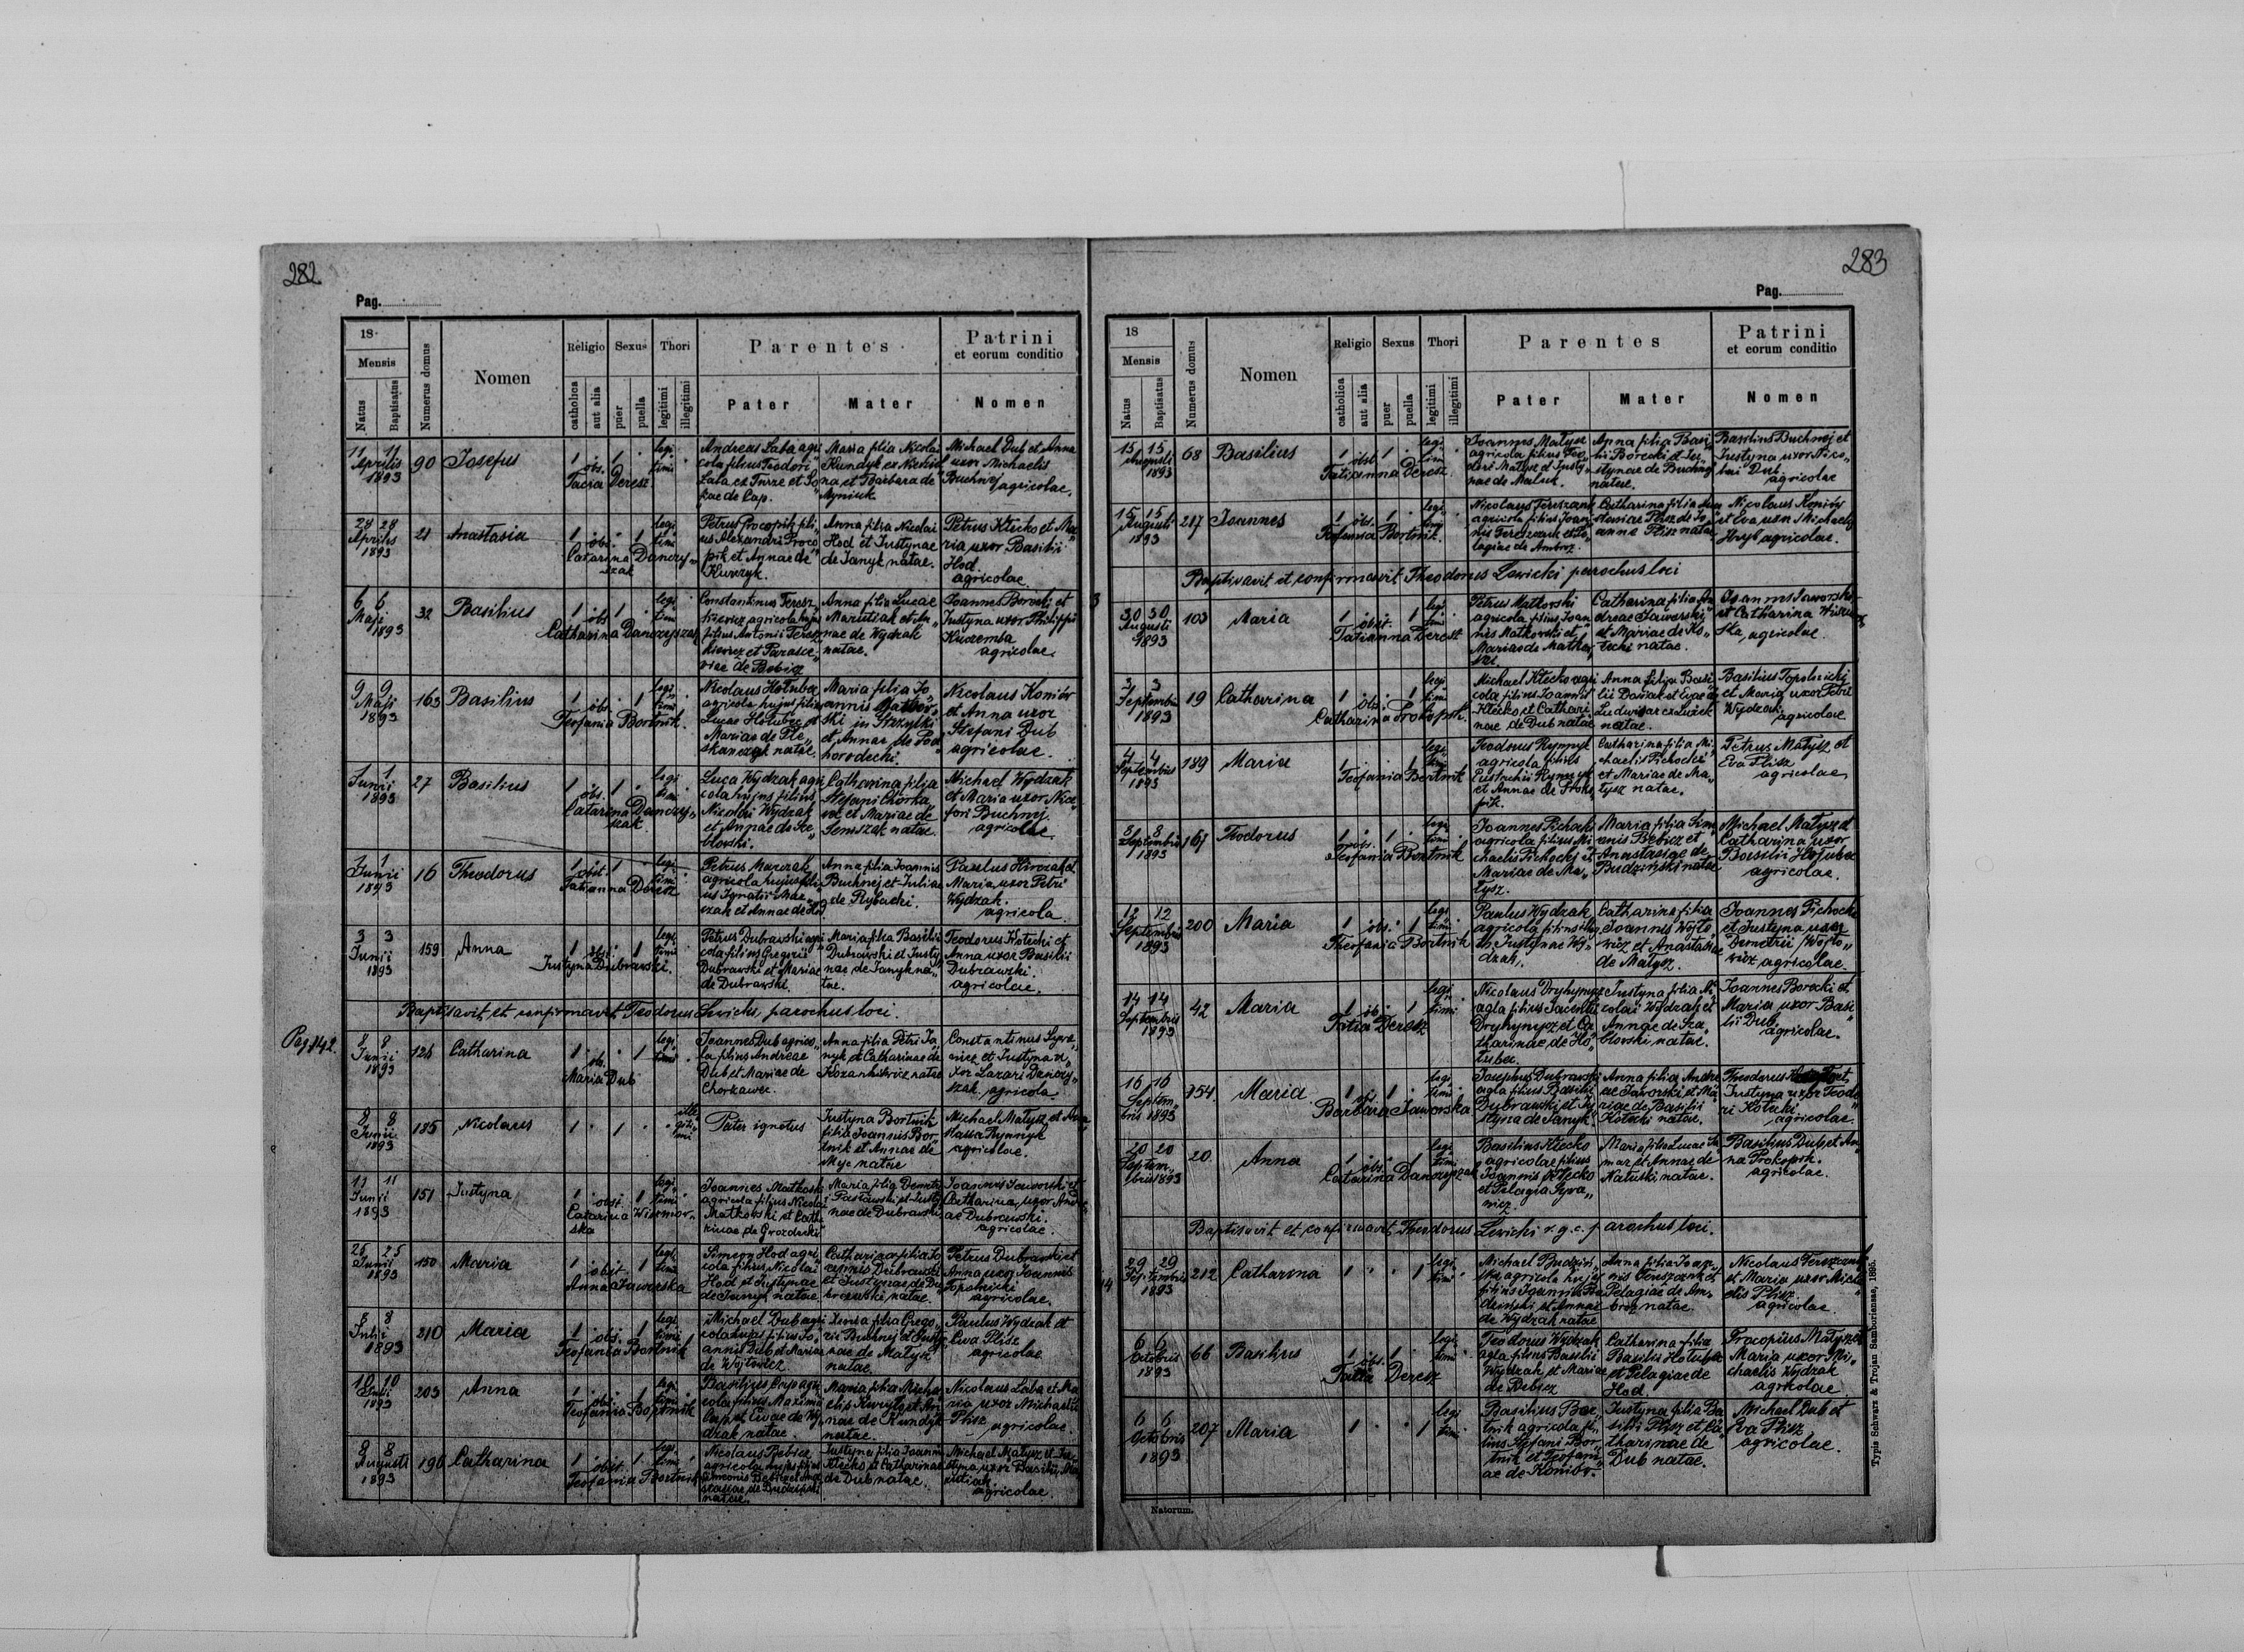 282
Pag.
18
Mensis
Natus
Baptisatus
Numerus domus
Nomen
Religio
catholica
aut alia
Sexus
puer
puella
Thori
legitimi
illegitimi
Parentes
Pater
Mater
Patrini
et eorum conditio
Nomen
11 11
Aprilis
1893
90
Josefus
1 obs. 1
legi
timi
Tacia Deresz
Andreas Laba agri
cola filius Teodori
Laba ex Turze et
nae de Cap.
Maria filia Nicolai
Kundyk
na et Barbara de
Michael Dub et Anna
uxor Michaelis
Buchnej agricolae.
28 28
Aprilis
1893
21
Anastasia
1 obs. 1
legi
timi
Catarina Danczy„
szak
Petrus Procopik fili
us Alexandri Proco
pik et Annae de
Anna filia Nicolai
Hod et Justynae
de Janyk natae.
Petrus Klecko et Ma
ria uxor Basilii
Hod.
agricolae
6 6
Maji
1893
32
Basilius
1 obs 1
legi
timi
Catharina Danczyszak
Constantinus Teresz
kiewicz agricola hujus
filius Antonii Teresz
kiewicz et Parasce„
viae de Bobicz
Anna filia Lucae
Marutiak et An„
nae de Wydzak
natae.
Joannes Borecki et
Justyna uxor Philippi
Kuzemba
agricolae.
9 9
Maji
1893
163
Basilius
1 obs. 1
legi
timi
Teofania Bortnik.
Nicolaus Holubec
agricola hujus filius
Lucae Holubec et
Mariae de Ple„
skanczak natae.
Maria filia Jo„
annis Matkow„
ski in Strzylki
et Annae de Pod
horodecki.
Nicolaus Koniów
et Anna uxor
Stefani Dub
agricolae.
1 1
Junii
1893
27
Basilius
1 obs. 1
legi
timi
Catarina Danczy„
szak
Luca Wydzak agri
cola hujus filius
Nicolai Wydzak
et Annae de Sza
blowski.
Catharina filia
Stefani Chorka„
we et Mariae de
Semszak natae.
Michael Wydzak
et Maria uxor Nice„
fori Buchnej
agricolae
1
Junii
1893
16
Theodorus
1 obst. 1
legi
timi
Tatianna Deresz
Petrus Maczak
agricola hujus fili
us Ignatii Mac„
zak et Annae de Hod
Anna filia Joannis
Buchnej et Juliae
de Rybacki.
Paulus Hirozak et
Maria uxor Petri
Wydzak.
agricola.
3 3
Junii
1893
159
Anna
1 obs. 1
legi
timi
Justyna Dubrawski.
Petrus Dubrawski agri
cola filius Gregorii
Dubrawski et Mariae
de Dubrawski.
Maria filia Basilii
Dubrawski et Justy
nae de Janyk na„
tae.
Teodorus Kotecki et
Anna uxor Basilii
Dubrawski.
agricolae.
Baptisavit et confirmavit Teodorus Lewicki, parochus loci.
Pag 142.
8 8
Junii
1893
124
Catharina
1 obs. 1
legi
timi
Maria Dub
Joannes Dub agrico„
la filius Andreae
Dub et Mariae de
Chorkawec.
Anna filia Petri Ja„
nyk et Catharinae de
Kozankiewicz natae
Constantinus Sywa„
nicz et Justyna u„
xor Lazari Danczy„
szak, agricola.
8 8
Junii
1893
185
Nicolaus
1 1
ille
giti
timi
Pater ignotus
Justyna Bortnik
filia Joannis Bor„
tnik et Annae de
natae
Michael Matysz et Ana„
stasia Rymnyk
agricolae.
11 11
Junii
1893
151
Justyna
1 obst. 1
legi
timi
Catarina Wiszniow„
ska
Joannes Matkoski
agricola filius Nicolai
Matkowski et Catha
rinae de Grozdecki
Maria filia Demitr
et Justy
nae de Dubrawski
Joannes Jaworski et
Catharina uxor Andre„
ae Dubrawski.
agricolae.
25 25
Junii
1893
150
Maria
1 obst. 1
legi
timi
Anna Jaworska
Simeon Hod agri
cola filius Nicolai
Hod et Justynae
de Janyk natae.
Catharina filia Jo
annis Dubrawski
et Justynae de Du
brawski natae.
Petrus Dubrawski et
Anna uxor Joannis
Topolnicki
agricolae.
8 8
Julii
1893
210
Maria
1 obs. 1
legi
timi
Teofania Bortnik
Michael Dub agri
cola hujus filius Jo„
annis Dub et Mariae
de Wojtowicz.
Xenia filia Grego„
rii Buchnej et Justy
nae de Matysz
natae.
Paulus Wydzak et
Ewa Plisz
agricolae
10 10
Julii
1893
203
Anna
1 obs. 1
legi
timi
Teofania Bortnik
Basilius Cap agri
cola filius Maximi
Cap et Evae de Wy„
dzak natae.
Maria filia Micha
elis Kurylo et An
nae de Kundyk
natae.
Nicolaus Laba et Ma
ria uxor Michaelis
Plisz
agricolae.
8 8
Augusti
1893
196
Catharina
1 obst. 1
legi
timi
Teofania Bortnik
Nicolaus Bebicz
agricola hujus filius
Simeonis Bebicz et Ana
stasiae de Budzinski
natae.
Justyna filia Joannis
Klecko et Catharinae
de Dub natae.
Michael Matysz et Ju„
styna uxor Basilii
agricolae.
283
Pag.
18
Mensis
Natus
Baptisatus
Numerus domus
Nomen
Religio
catholica
aut alia
Sexus
puer
puella
Thori
legitimi
illegitimi
Parentes
Pater
Mater
Patrini
et eorum conditio
Nomen
15 15
Augusti
1893
68
Basilius
1 obst. 1
legi
timi
Tatianna Deresz
Joannes Matysz
agricola filius Teo„
dori Matysz et Justy„
nae de Maluk.
Anna filia Basi„
lii Borecki et Ju„
stynae de Buchnej
natae.
Basilius Buchnej et
Justyna uxor Nico„
lai Dub.
agricolae
15 15
Augusti
1893
217
Joannes
1 obs. 1
legi
timi
Teofania Bortnik.
Nicolaus Tereszczuk
agricola filius Joan„
nis Tereszczuk et Pe
lagiae de Ambroz.
Catharina filia
Plisz de Jo„
anna Plisz natae
Nicolaus Koniów
et Eva uxor Michaelis
Hryb agricolae.
Baptisavit et confirmavit Theodorus Lewicki parochus loci
30 30
Augusti
1893
103
Maria
1 obst. 1
legi
timi
Tatianna Deresz
Petrus Matkowski
agricola filius Joan„
nis Matkowski et
Mariae de Matkow„
ski.
Catharina filia An
dreae Jaworski
et Mariae de Ko„
tecki natae.
Joannes Jaworski
et Catharina Wiszniow„
ska, agricolae.
3 3
Septembris
1893
19
Catharina
1 obs. 1
legi
timi
Catharina Prokopik.
Michael Klecko agri
cola filius Joannis
Klecko et Cathari
nae de Dub natae
Anna filia Basi„
lii Danzak et Evae de
Ludwiszar ex Luzek
natae.
Basilius Topolnicki
et Maria uxor Petri
Wydzak
agricolae
4 4
Septembris
1893
189
Maria
1 1
legi
timi
Teofania Bortnik
Teodorus Rymnyk
agricola filius
Eustachii Rymnyk
et Annae de Proko
pik.
Catharina filia Mi„
chaelis Pichocki
et Mariae de Ma„
tysz natae.
Petrus Matysz et
Eva Plisz
agricolae
8 8
Septembris
1893
167
Teodorus
1 obs. 1
legi
timi
Teofania Bortnik
Joannes Pichocki
agricola filius Mi„
chaelis Pichocki et
Mariae de Ma„
tysz.
Maria filia Sime
onis Bebicz et
Anastasiae de
Budzinski natae
Michael Matysz et
Catharina uxor
Basilii Holubec
agricolae.
12 12
Septembris
1893
200
Maria
1 obs. 1
legi
timi
Theofania Bortnik
Paulus Wydzak
agricola filius
Justynae Wy„
dzak,
Catharina filia
Joannis Wojto„
wicz et Anastasiae
de Matysz.
Joannes Pichocki
et Justyna uxor
Demetrii Wojto„
wicz agricolae.
14 14
Septembris
1893
42
Maria
1 ob. 1
legi
timi
Tatia Deresz
Nicolaus Dryhynycz
agla filius Jacenti
Dryhynycz et Ca
tharinae de Ho„
lubec.
Justyna filia Ni
colai Wydzak et
Annae de Sza„
blowski natae.
Joannes Borecki et
Maria uxor Basi„
lii Dub.
agricolae.
16 16
Septem„
bris 1893
154.
Maria
1 obs. 1
legi
timi
Barbara Jaworska
Josephus Dubrawski
agla filius Basilii
Dubrawski et Ju
styna de Janyk.
Anna filia Andre
ae Jaworski et Ma„
riae de Basilii
Kotecki natae.
Theodorus et
Justyna uxor Teodo„
ri Kotecki.
agricolae.
20 20
Septem„
bris 1893
20.
Anna
1 obs. 1
legi
timi
Catarina Danczyszak
Basilius Klecko
agricolae filius
Joannis Klecko
et Pelagia Sywa„
nicz.
Maria filia Lucae
et Annae de
Matuski natae.
Basilius Dub et An„
na Prokopik.
agricolae.
Baptisavit et confirmavit Theodorus Lewicki r. g. c. parochus loci.
29 29
Septembris
1893
212
Catharina
1 1
legi
timi
Michael Budzin„
ski agricola hujus
filius Joannis Bu
dzinski et Annae
de Wydzak natae
Anna filia Joan„
nis Tereszczuk et
Pelagiae de Am„
broz natae.
Nicolaus Tereszczuk
et Maria uxor Micha
elis Plisz
agricolae.
6 6
Octobris
1893
66
Basilius
1 obs. 1
legi
timi
Tatia Deresz
Teodorus Wydzak
agla filius Basilii
Wydzak et Mariae
de Bebicz
Catharina filia
Basilii Holubec
et Pelagiae de
Hod.
Procopius Matysz et
Maria uxor Mi„
chaelis Wydzak
agricolae
6 6
Octobris
1893
207
Maria
1 1
legi
timi
Basilius Bor„
tnik agricola fi„
lius Stefani Bor„
tnik et Teofani„
ae de Koniów.
Justyna filia Ba
silii Plisz et Ca„
tharinae de
Dub natae.
Michael Dub et
Eva Plisz
agricolae.
Natorum.
Typis Schwarz & Trojan Samboriensae, 1895.